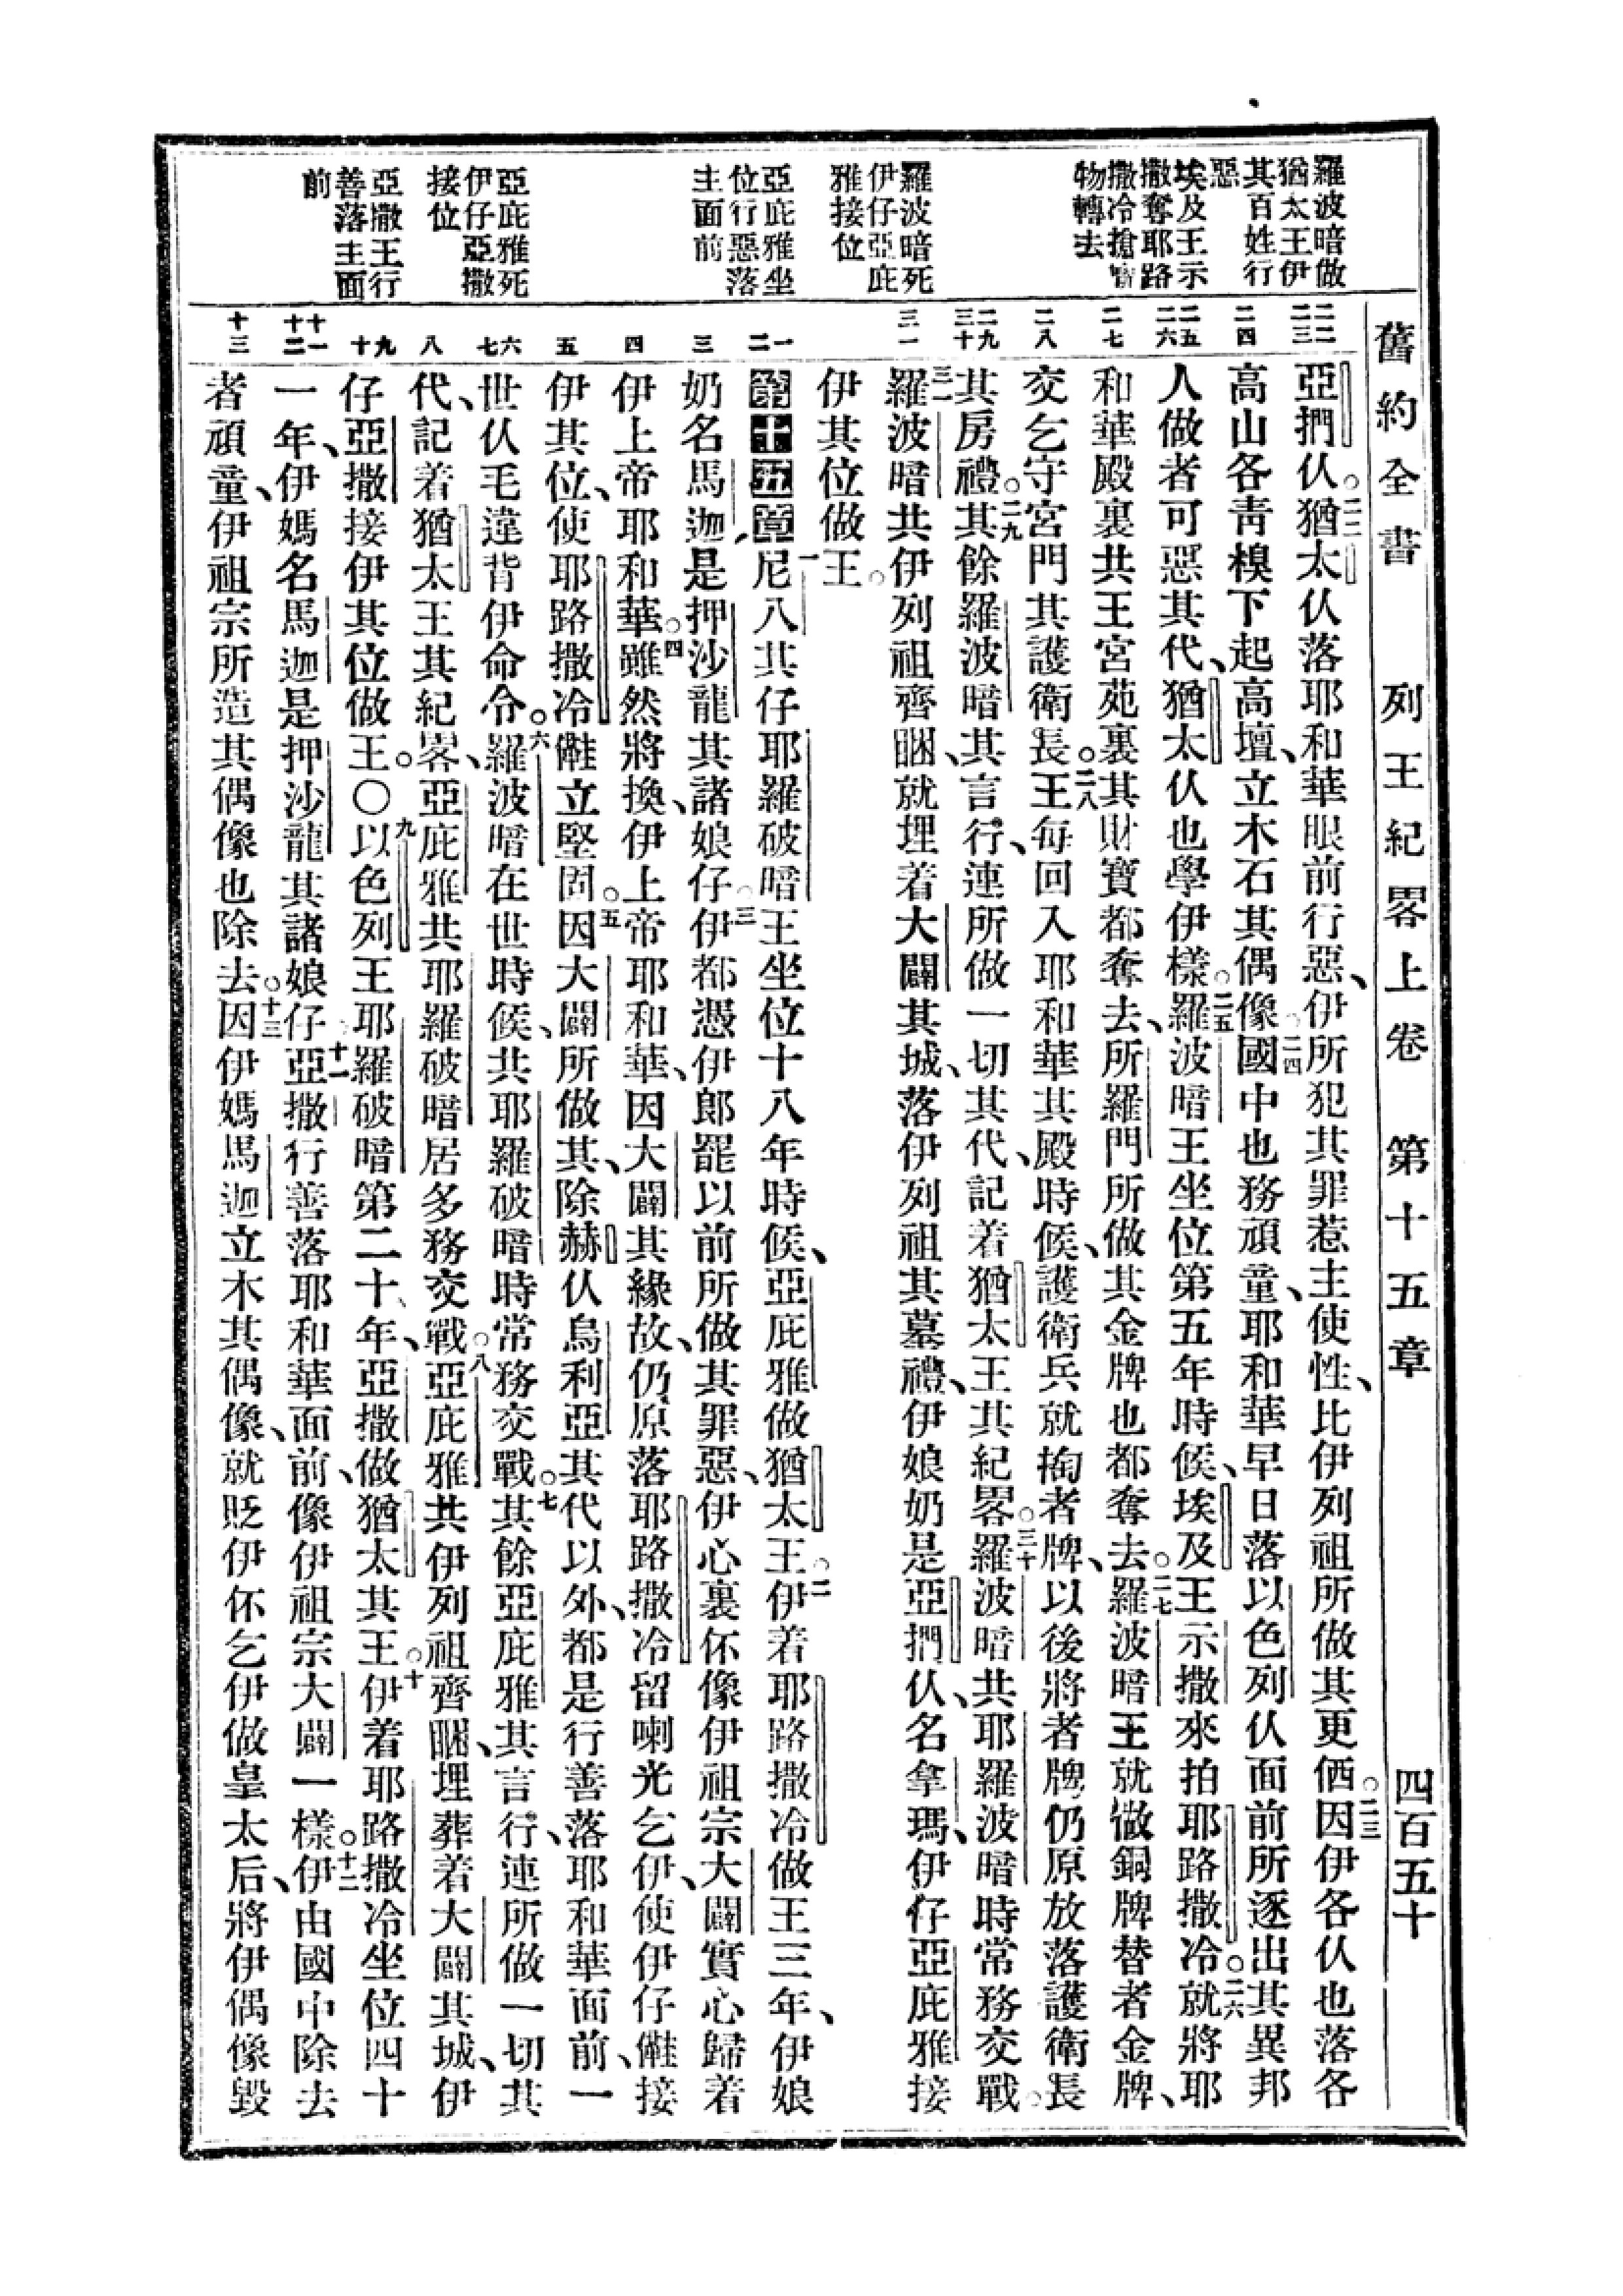 舊約全書 列王紀畧上卷 第十五章 四百五十
羅波暗做
猶太王伊
其百姓行
惡
埃及王示
撒奪耶路
撒冷搶寶
物轉去
羅波暗死
伊仔亞庇
雅接位
亞庇雅坐
位行惡落
主面前
亞庇雅死
伊仔亞撒
接位
亞撒王行
善落主面
前
二二
二三
二四
二五
二六
二七
二八
二九
三十
三一
一
二
三
四
五
六
七
八
九
十
十一
十二
十三
亞捫仈。二二猶太仈落耶和華眼前行惡、伊所犯其罪惹主使性、比伊列祖所做其更価。二三因伊各仈也落各
高山各靑模下起高壇、立木石其偶像。二四國中也務頑童、耶和華早日落以色列仈面前所逐出其異邦
人做者可惡其代、猶太仈也學伊樣。二五羅波暗王坐位第五年時候、埃及王示撒來拍耶路撒冷。二六就將耶
和華殿裏共王宮苑裏其財寶都奪去、所羅門所做其金牌也都奪去。二七羅波暗王就做銅牌替者金牌、
交乞守宮門其護衛長。二八王每回入耶和華其殿時候、護衛兵就掏者牌、以後將者牌仍原放落護衛長
其房禮。二九其餘羅波暗其言行、連所做一切其代、記着猶太王其紀畧。三十羅波暗共耶羅波暗時常務交戰。
三一羅波暗共伊列祖齊睏、就埋着大闢其城、落伊列祖其墓禮、伊娘奶是亞捫仈、名拿瑪、伊仔亞庇雅接
伊其位做王。
第十五章 一尼八其仔耶羅破暗王坐位十八年時候、亞庇雅做猶太王。二伊着耶路撒冷做王三年、伊娘
奶名馬迦、是押沙龍其諸娘仔。三伊都憑伊郎罷以前所做其罪惡、伊心裏伓像伊祖宗大闢實心歸着
伊上帝耶和華。四雖然將換、伊上帝耶和華、因大闢其緣故、仍原落耶路撒冷留喇光乞伊、使伊仔𣍐接
伊其位、使耶路撒冷𣍐立堅固。五因大闢所做其、除赫仈烏利亞其代以外、都是行善落耶和華面前、一
世仈毛違背伊命令。六羅波暗在世時候、共耶羅破暗時常務交戰。七其餘亞庇雅其言行、連所做一切其
代、記着猶太王其紀畧、亞庇雅共耶羅破暗居多務交戰。八亞庇雅共伊列祖齊睏、埋葬着大闢其城、伊
仔亞撒接伊其位做王。〇九以色列王耶羅破暗第二十年、亞撒做猶太其王。十伊着耶路撒冷坐位四十
一年、伊媽名馬迦是押沙龍其諸娘仔。十一亞撒行善落耶和華面前、像伊祖宗大闢一樣。十二伊由國中除去
者頑童、伊祖宗所造其偶像也除去。十三因伊媽馬迦立木其偶像、就貶伊伓乞伊做皇太后、將伊偶像毀